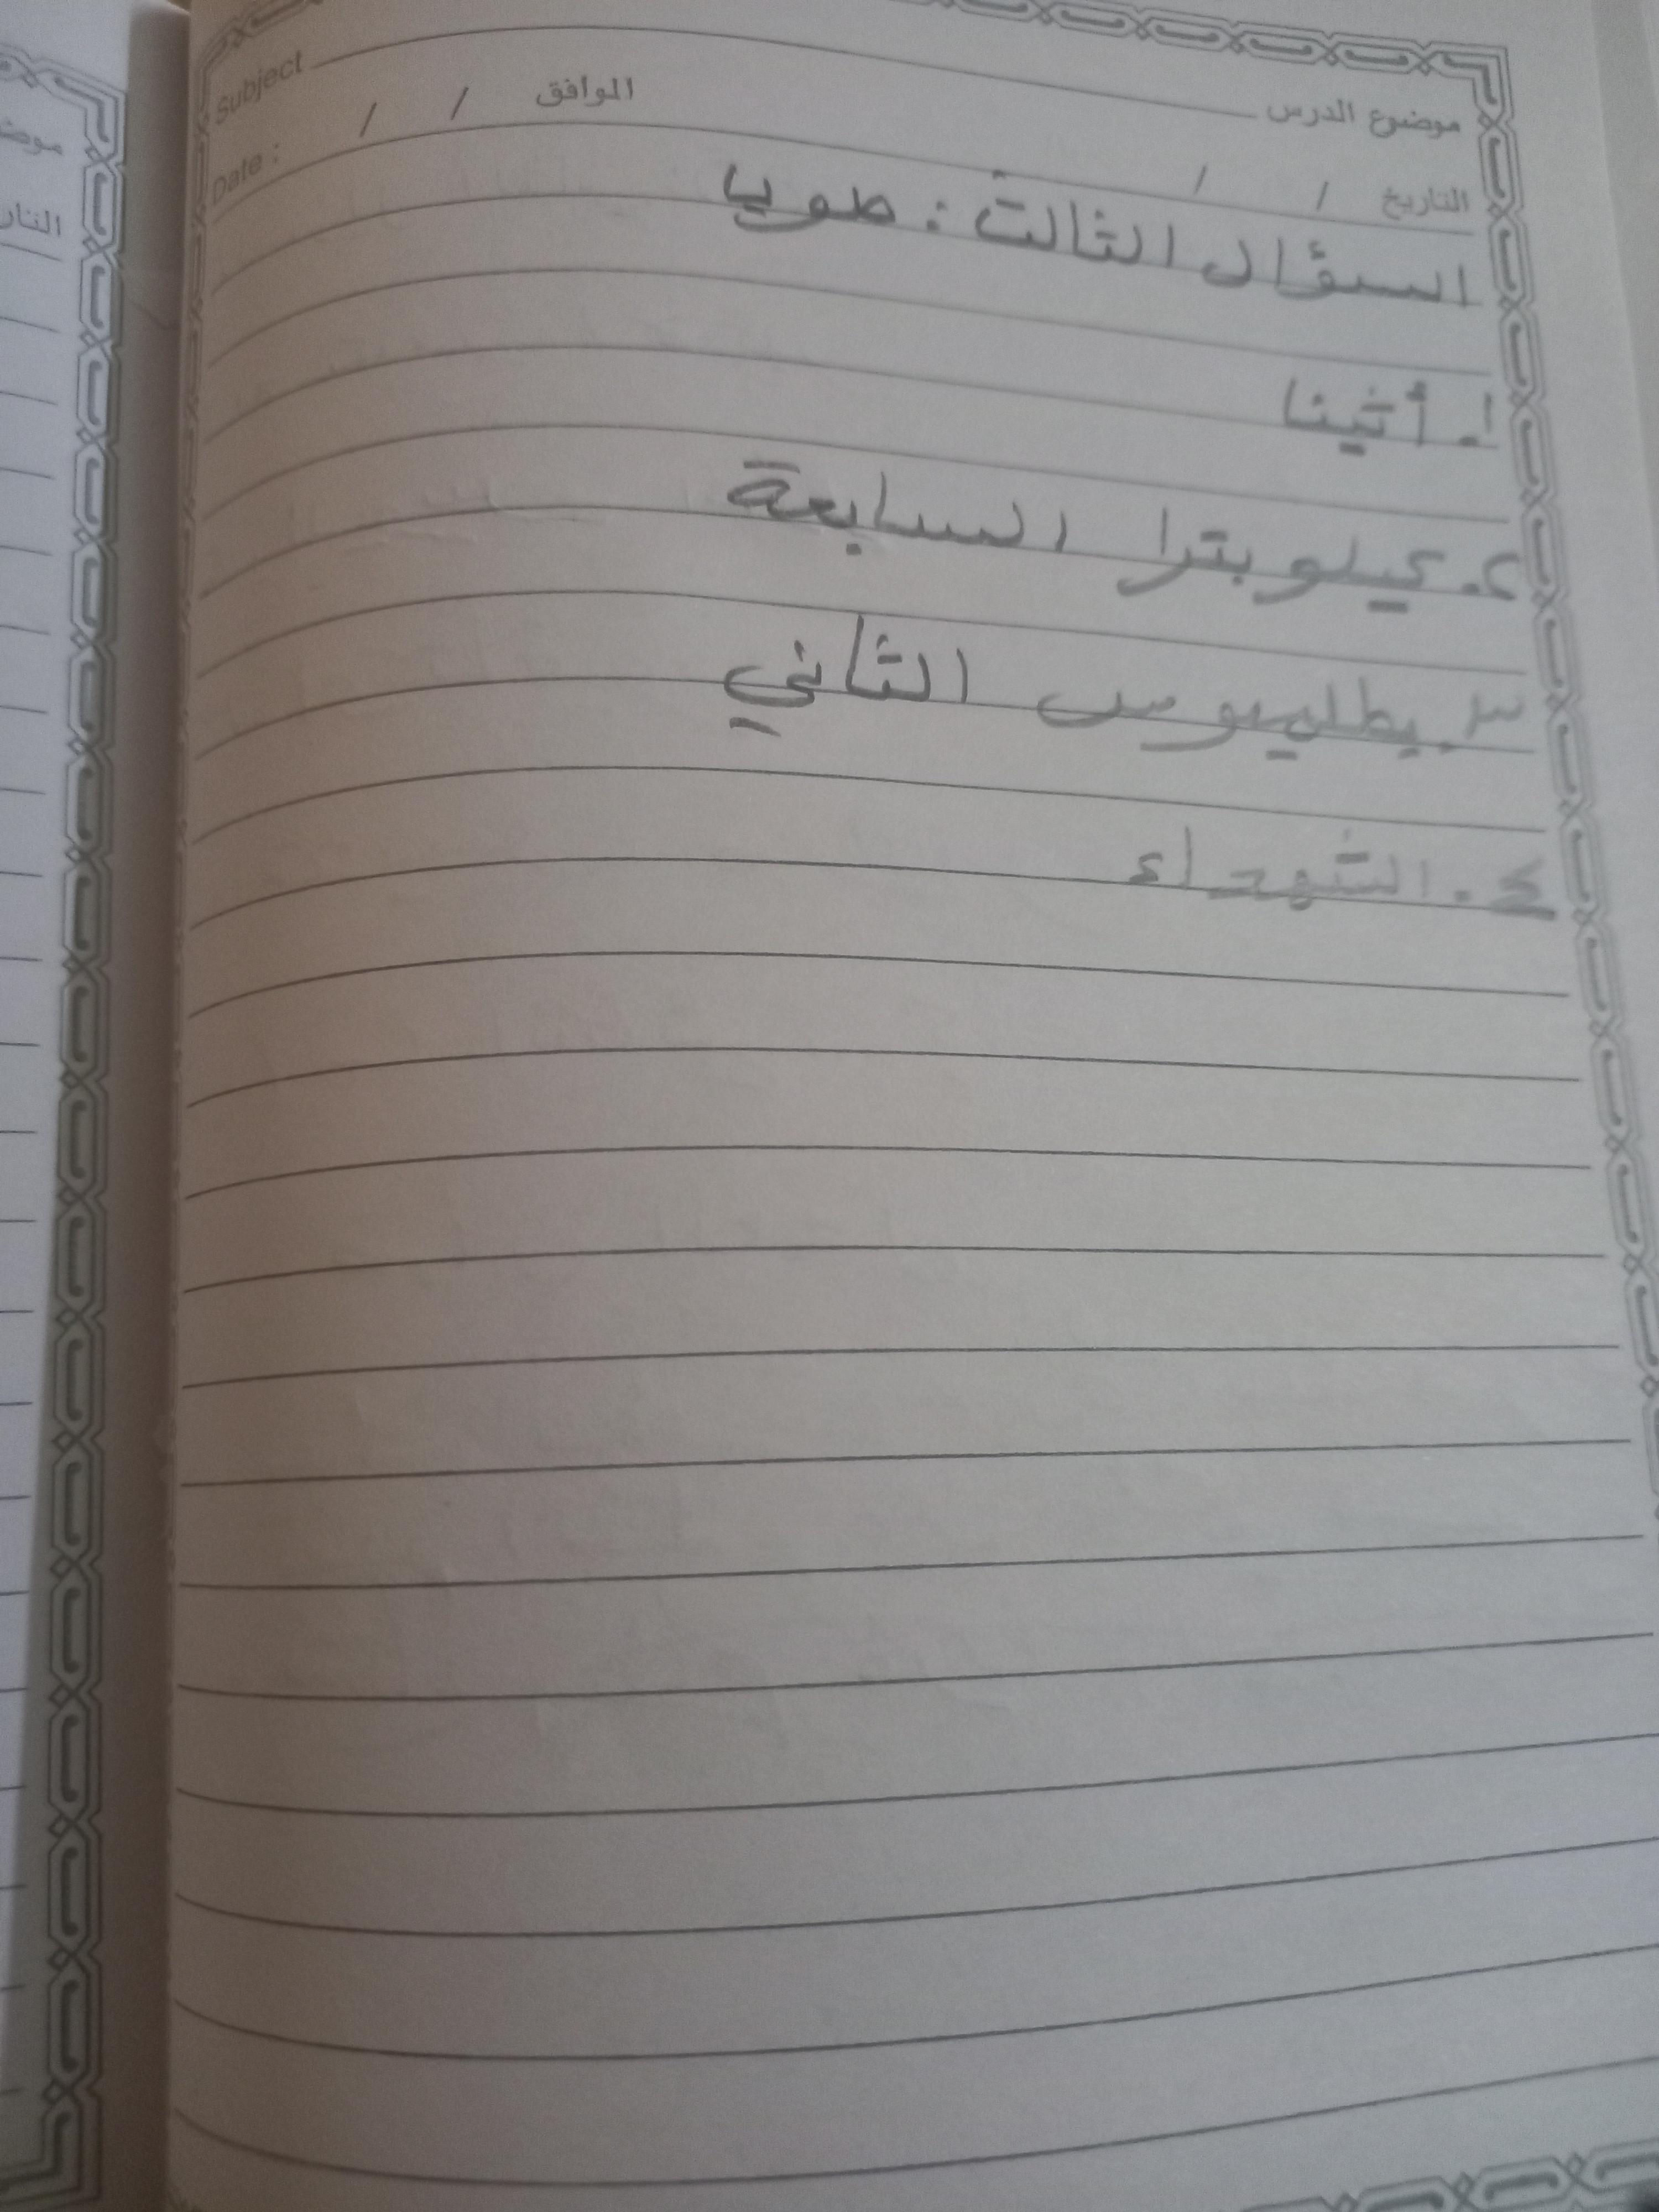 Subject موضوع الدرس
Date : / / الموافق / / التاريخ
السؤال الثالث : صوبيا
١. أثينا
٢. كيلوبترا السابعة
٣. بطلميوس الثاني
٤. الشهداء
موض
التار